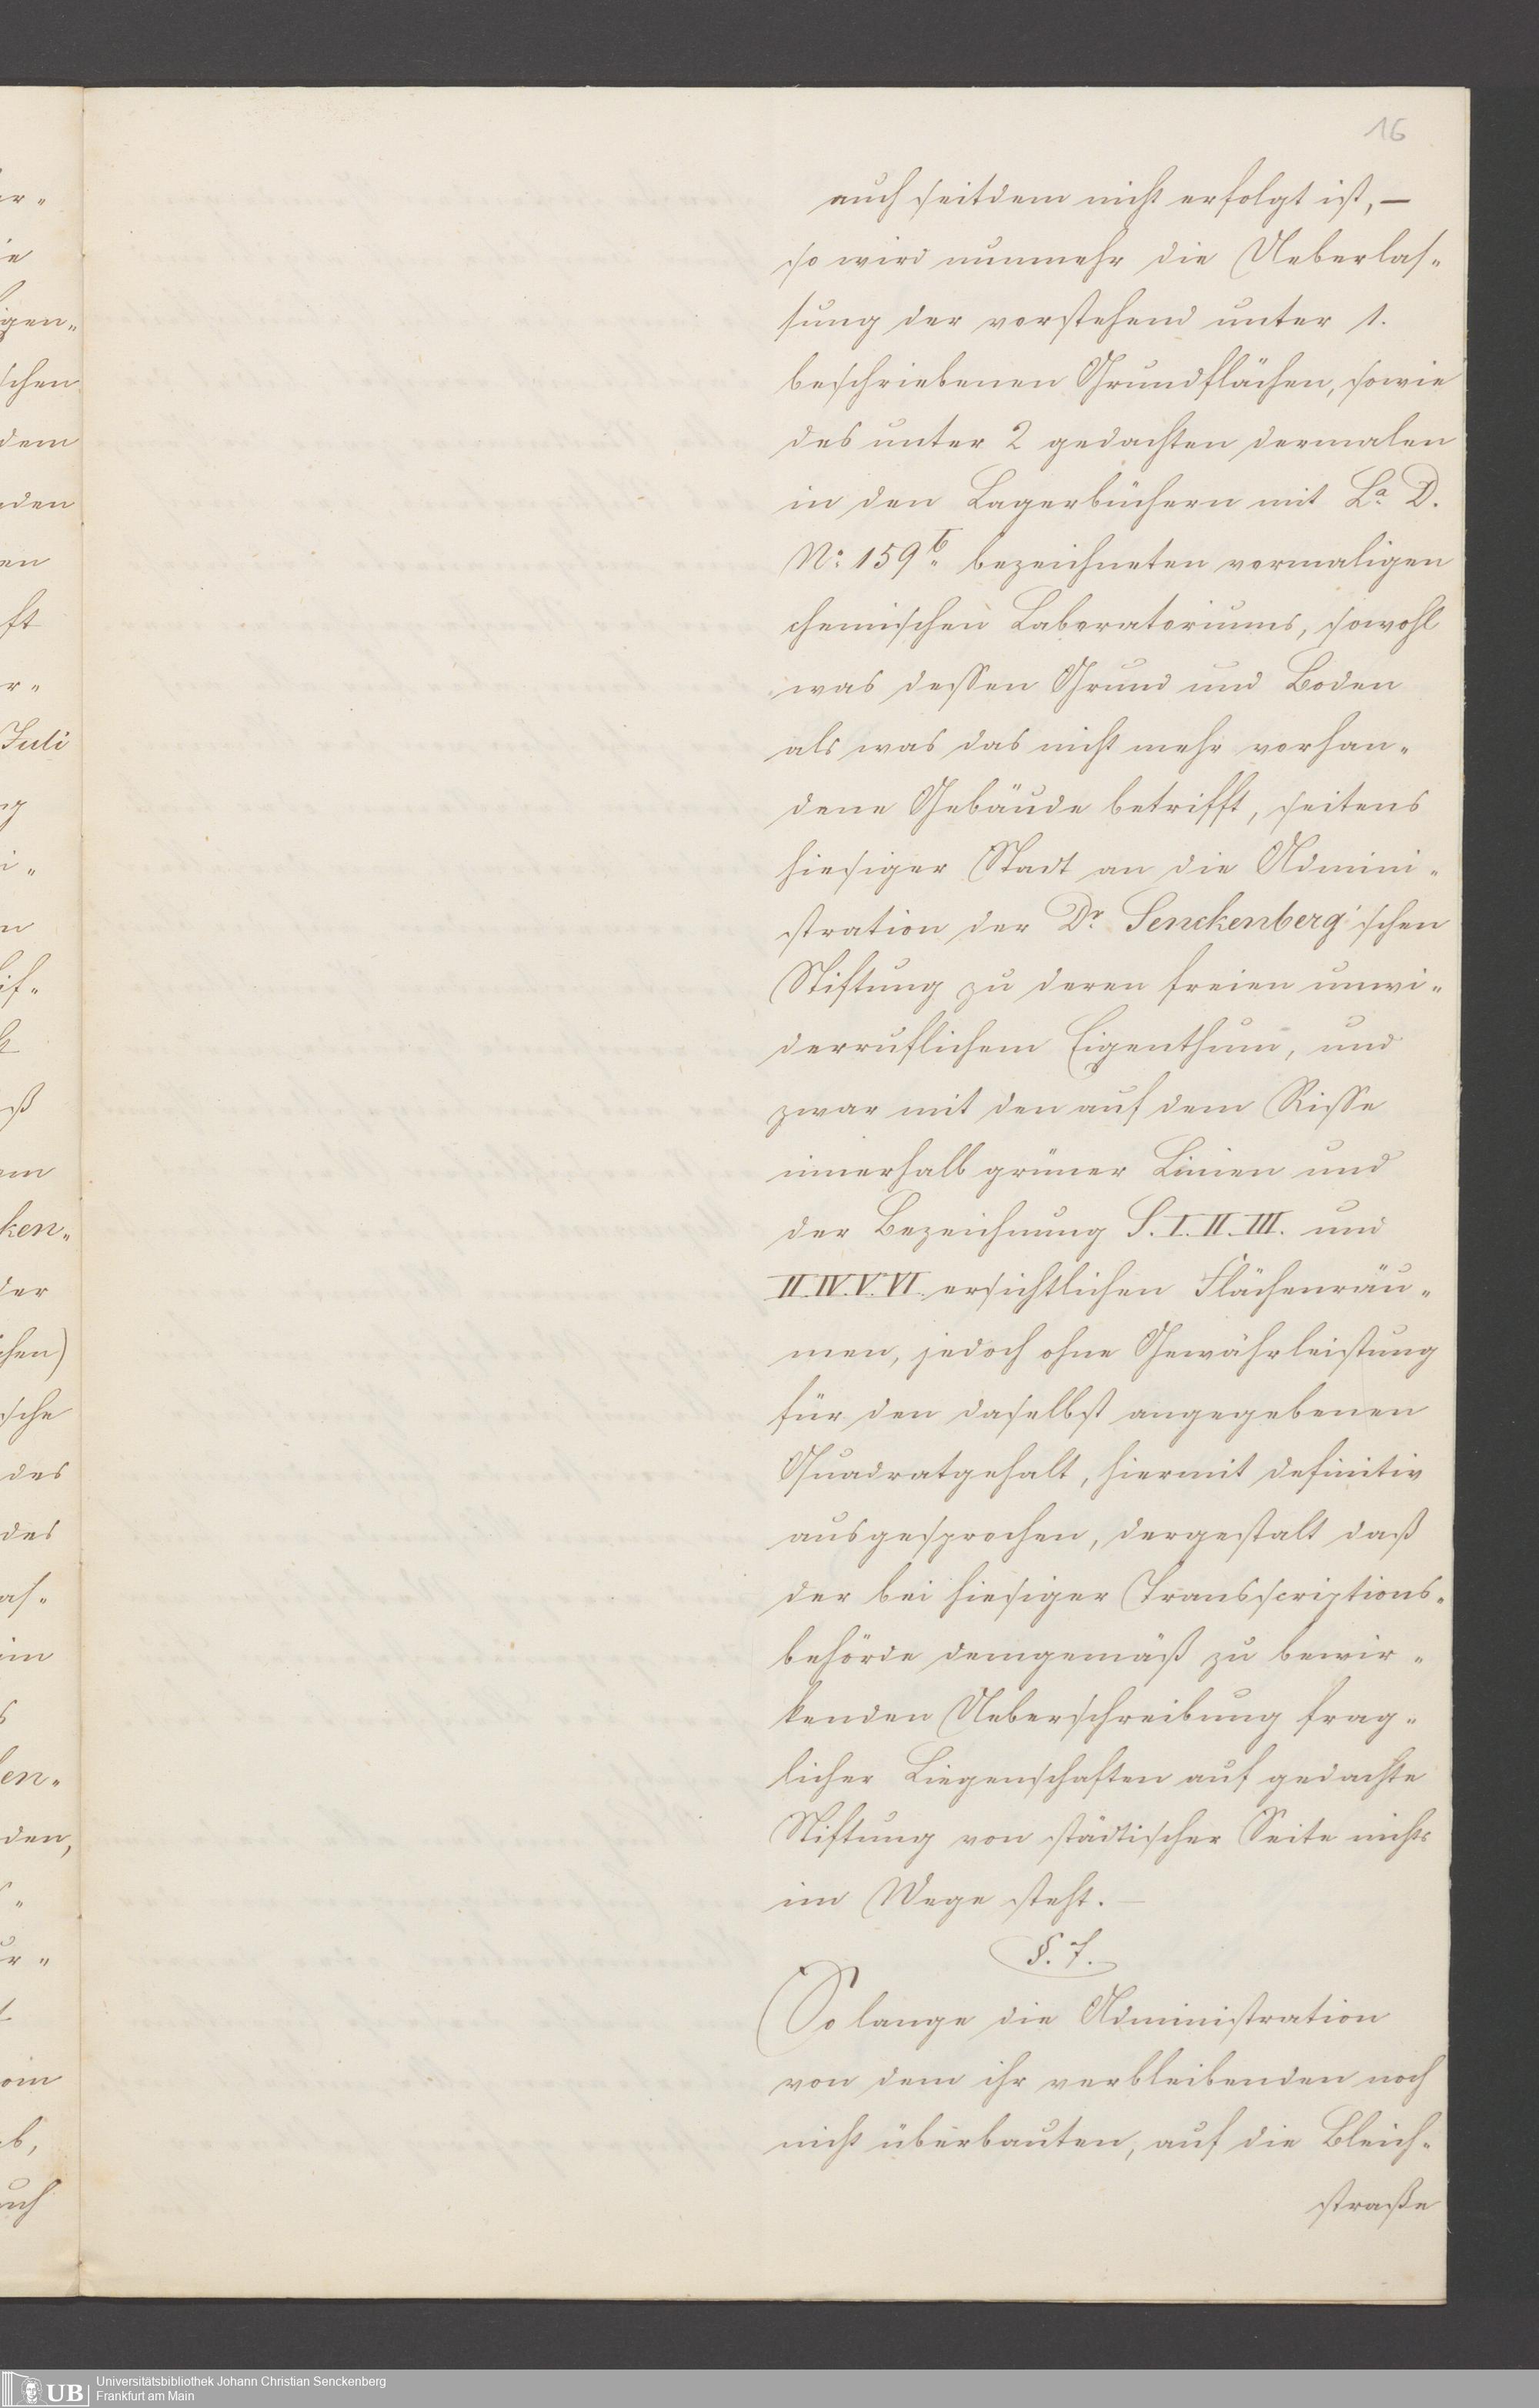 16
auch seitdem nicht erfolgt ist, —
so wird nunmehr die Ueberlas-
sung der vorstehend unter 1.
beschriebenen Grundflächen, sowie
des unter 2 gedachten dermalen
in den Lagerbüchern mit La. D.
No. 159b. bezeichneten vormaligen
chemischen Laboratoriums, sowohl
was dessen Grund und Boden
als was das nicht mehr vorhan-
dene Gebäude betrifft, seitens
hiesiger Stadt an die Admini-
stration der Dr. Senckenberg'schen
Stiftung zu deren freien unwi-
derruflichem Eigenthum, und
zwar mit den auf dem Risse
innerhalb grüner Linien und
der Bezeichnung S. I. II. III. und
II. IV. V. VI. ersichtlichen Flächenräu-
men, jedoch ohne Gewährleistung
für den daselbst angegebenen
Quadratgehalt, hiermit definitiv
ausgesprochen, dergestalt daß
der bei hiesiger Transscriptions-
behörde demgemäß zu bewir-
kenden Ueberschreibung frag-
licher Liegenschaften auf gedachte
Stiftung von städtischer Seite nichts
im Wege steht. —
§. 7.
So lange die Administration
von dem ihr verbleibenden noch
nicht überbauten, auf die Bleich-
straße
er-
ie
igen-
schen
dem
nden
en
ft
r-
Juli
ng
i-
n
iß
em
ken-
der
chen)
sche
des
des
as-
im
s
en-
den,
r-
oin
b,
uch
UB
Universitätsbibliothek Johann Christian Senckenberg
Frankfurt am Main